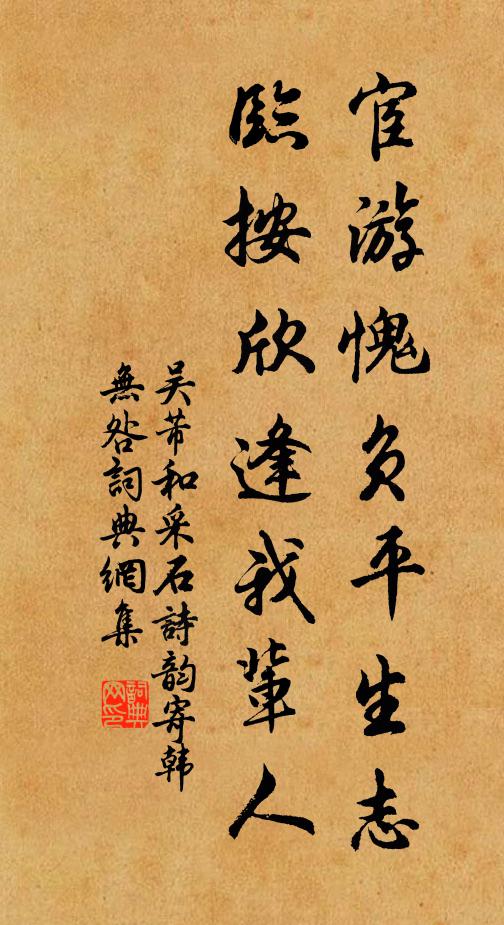 宦游愧负平生志
临按欣逢我辈人
吴芾和采石诗韵寄韩
無咎詞典網集
詞典
网印